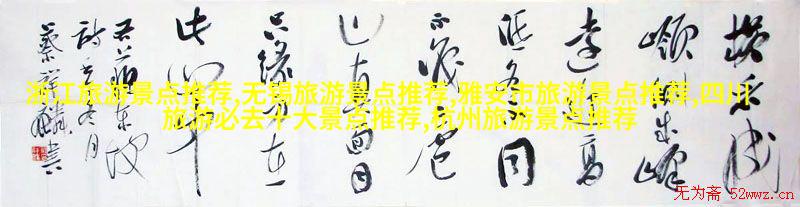 橫看成
嶺側成峰
遠近高
低各不同
不識廬
山真面目
只緣身在
此山中
蔡祥麟書
浙江旅游景点推荐,无锡旅游景点推荐,雅安市旅游景点推荐,四川
旅游必去十大景点推荐,杭州旅游景点推荐
无为斋 52wwz.cn